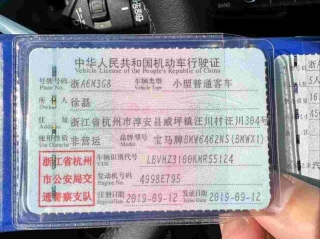 中华人民共和国机动车行驶证
Vehicle License of the People's Republic of China
号牌号码 浙A6M3G8 车辆类型 小型普通客车
所有人 徐磊
住址 浙江省杭州市淳安县威坪镇汪川村汪川304号
使用性质 非营运 品牌型号 宝马牌BMW6462NS(BMWX1)
浙江省杭州
市公安局交
通警察支队
车辆识别代号
VIN
发动机号码 4998E795
Engine No.
注册日期 2019-09-12 发证日期 2019-09-12